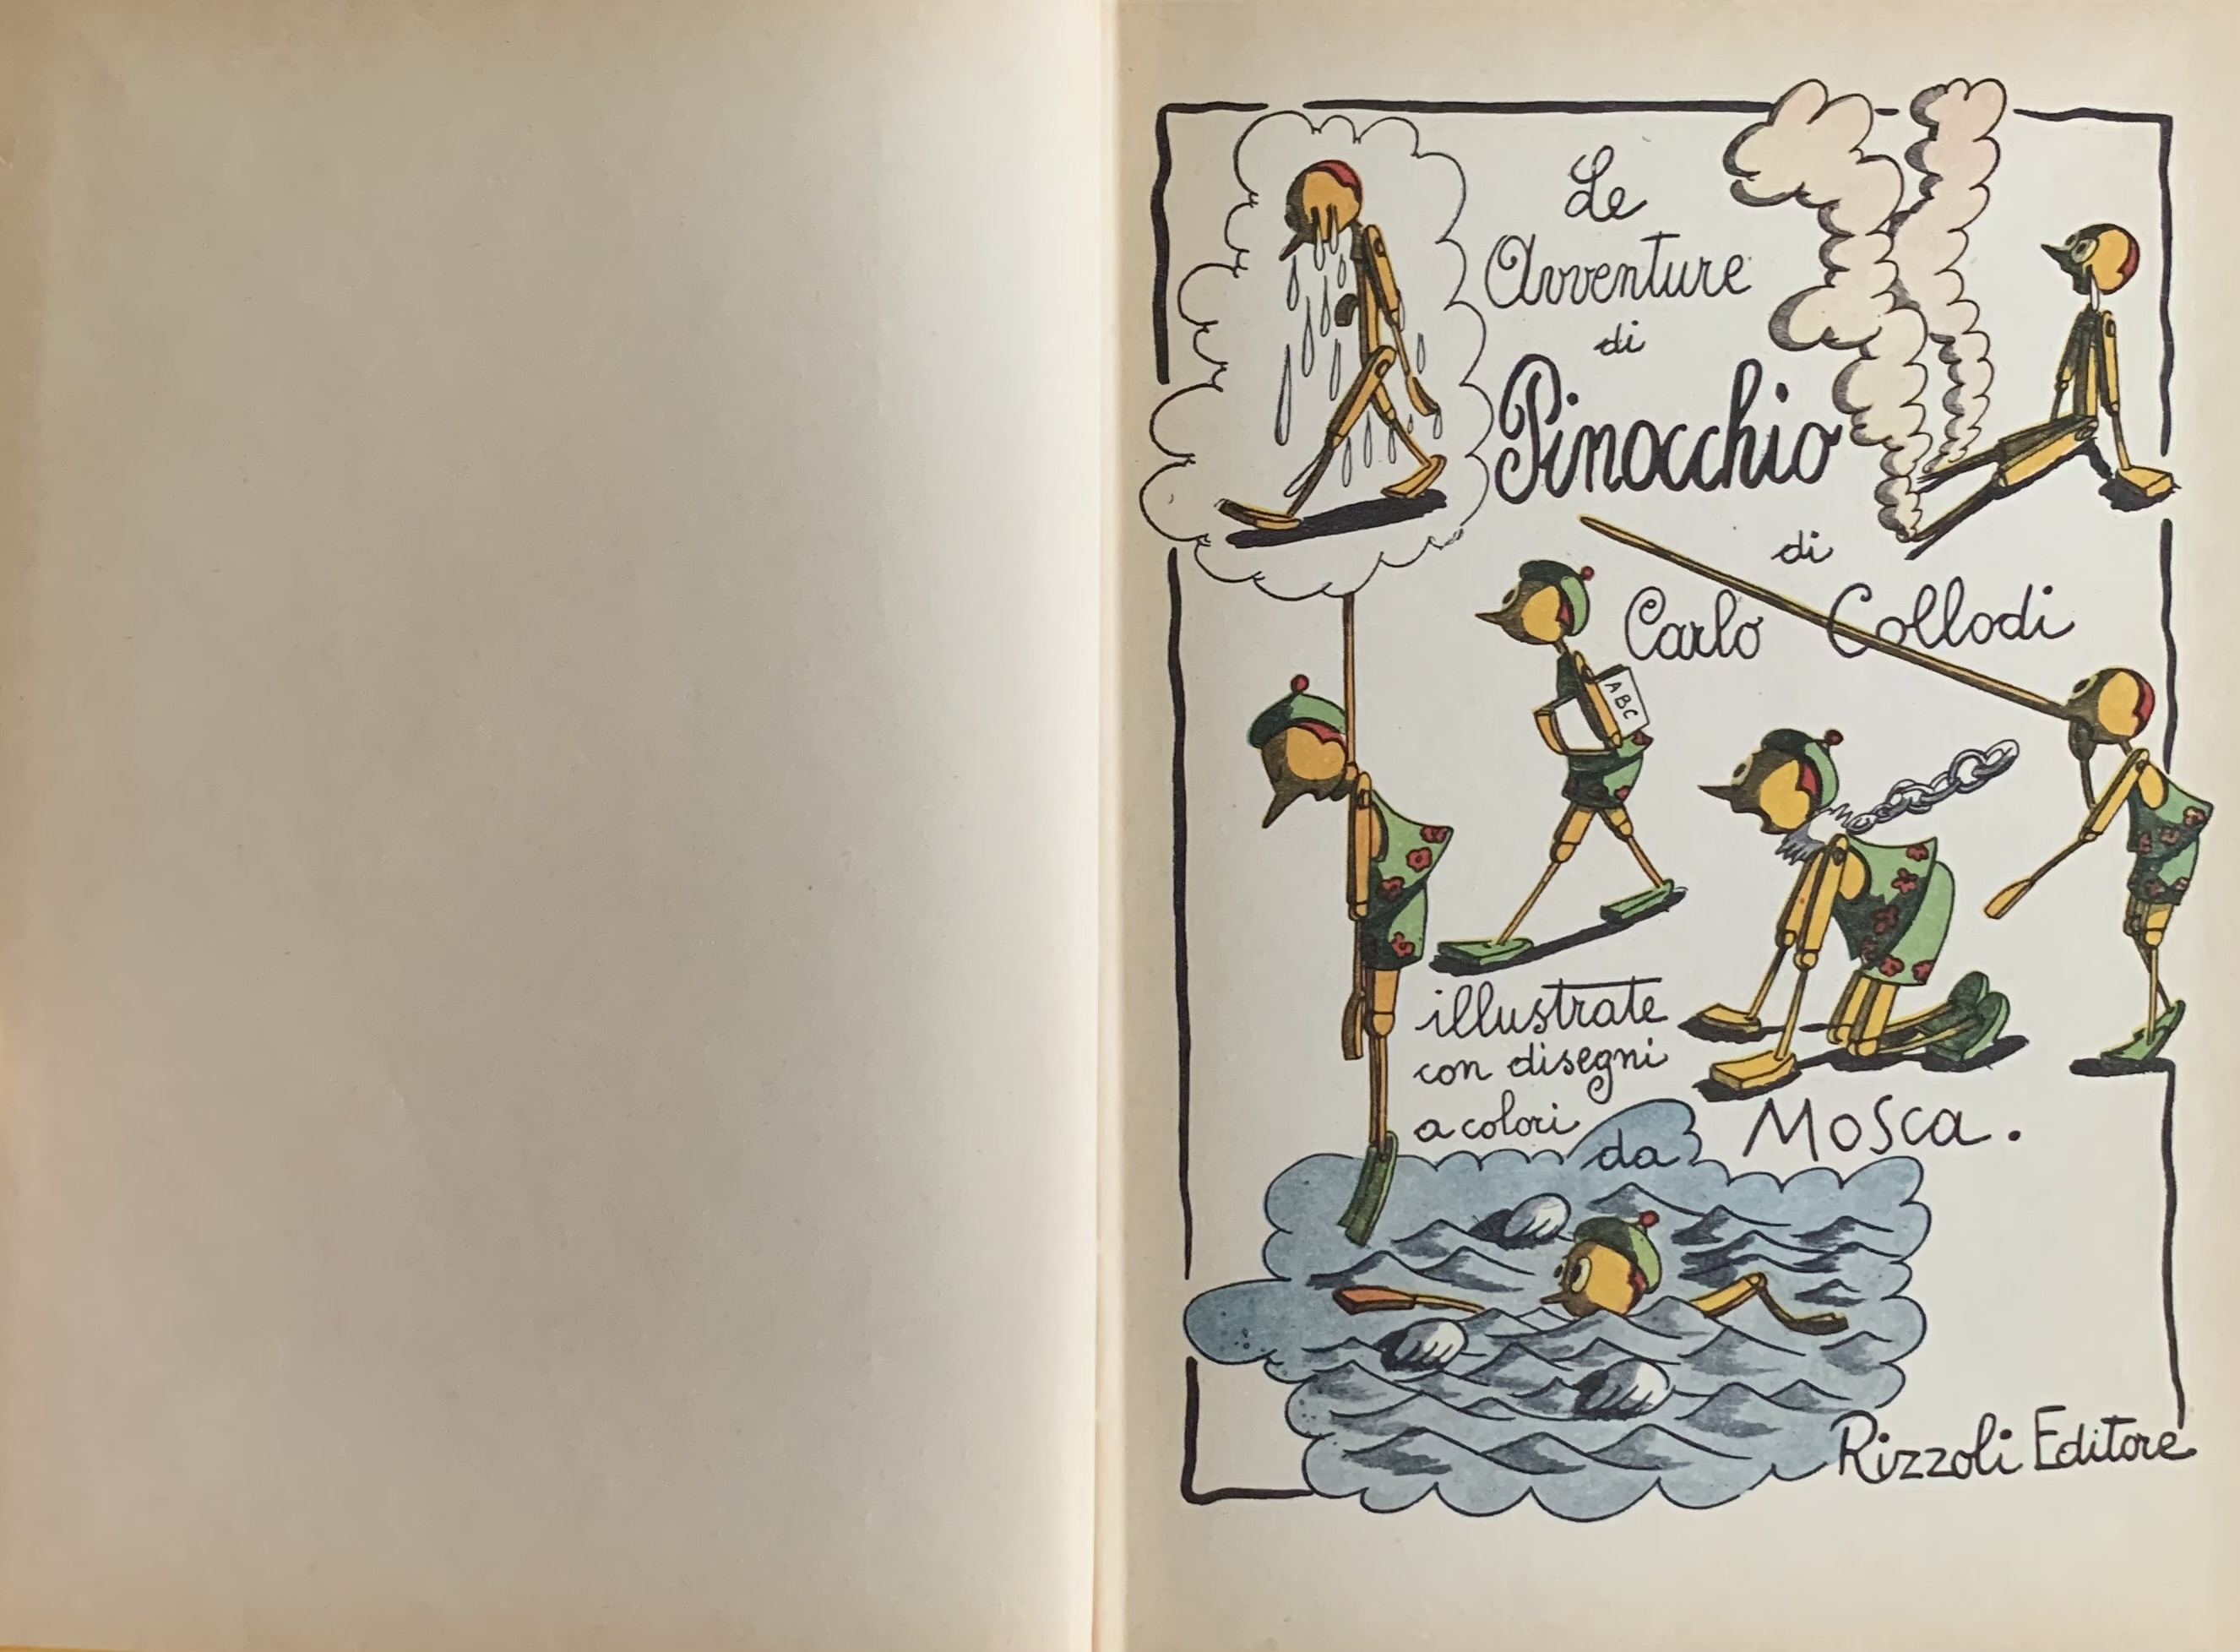 Le
Avventure
di
Pinocchio
di
Carlo Collodi
ABC
illustrate
con disegni
a colori
da Mosca.
Rizzoli Editore